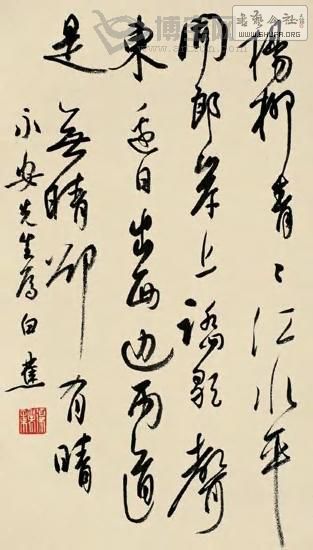 楊柳青〻江水平
聞郎岸上踏歌聲
東邊日出西邊雨道
是無晴卻有晴
永安先生屬 白蕉
书艺公社
WWW.SHUFA.ORG